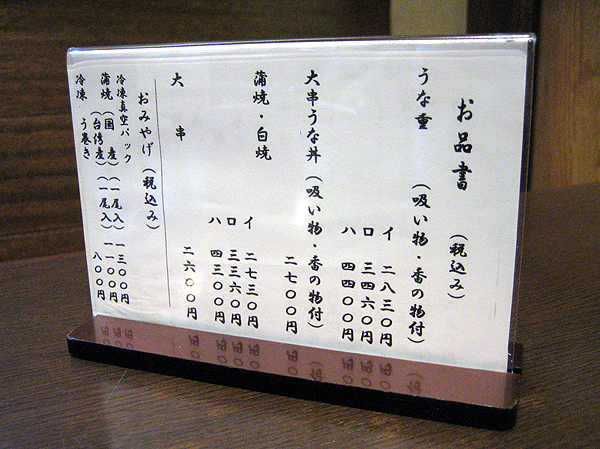 お品書 (税込み)
うな重 (吸い物・香の物付)
イ 二八三〇円
ロ 三四六〇円
ハ 四四〇〇円
大串うな丼 (吸い物・香の物付)
二七〇〇円
蒲焼・白焼
イ 二七三〇円
ロ 三三六〇円
ハ 四三〇〇円
大串 二六〇〇円
おみやげ (税込み)
冷凍真空パック
蒲焼 (国産) (一尾入) 一三〇〇円
(台湾産) (一尾入) 一一〇〇円
冷凍 う巻き 八〇〇円